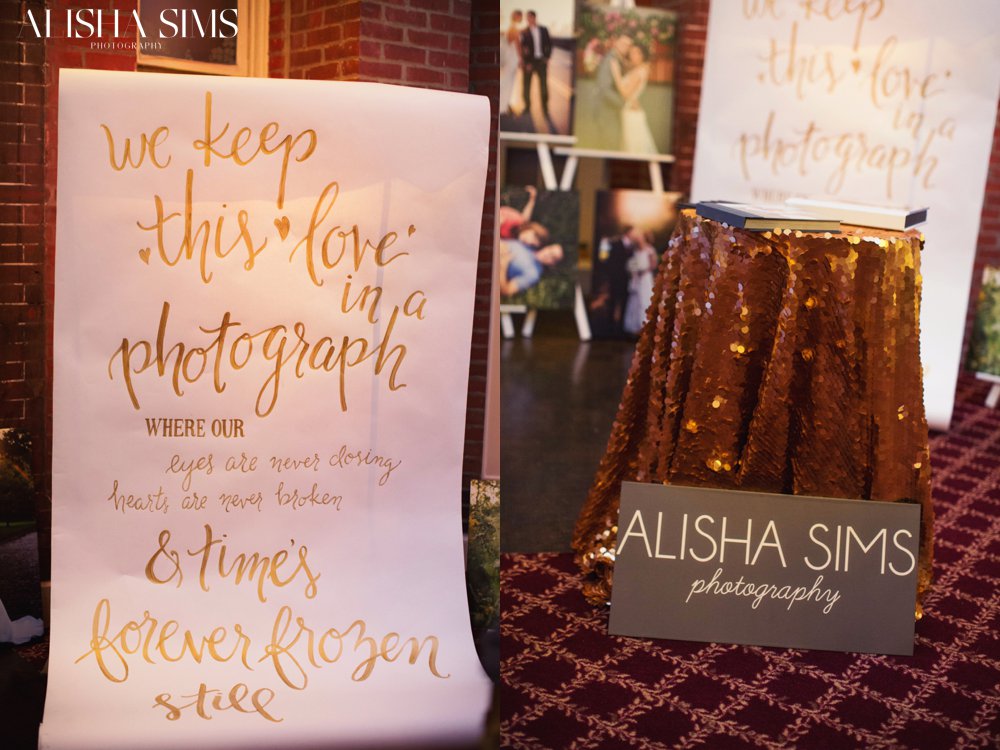 ALISHA SIMS
PHOTOGRAPHY
we keep
this love
in a
photograph
WHERE OUR
eyes are never closing
hearts are never broken
& time's
forever frozen
still
we keep
this love
in a
photograph
WHERE
ALISHA SIMS
photography